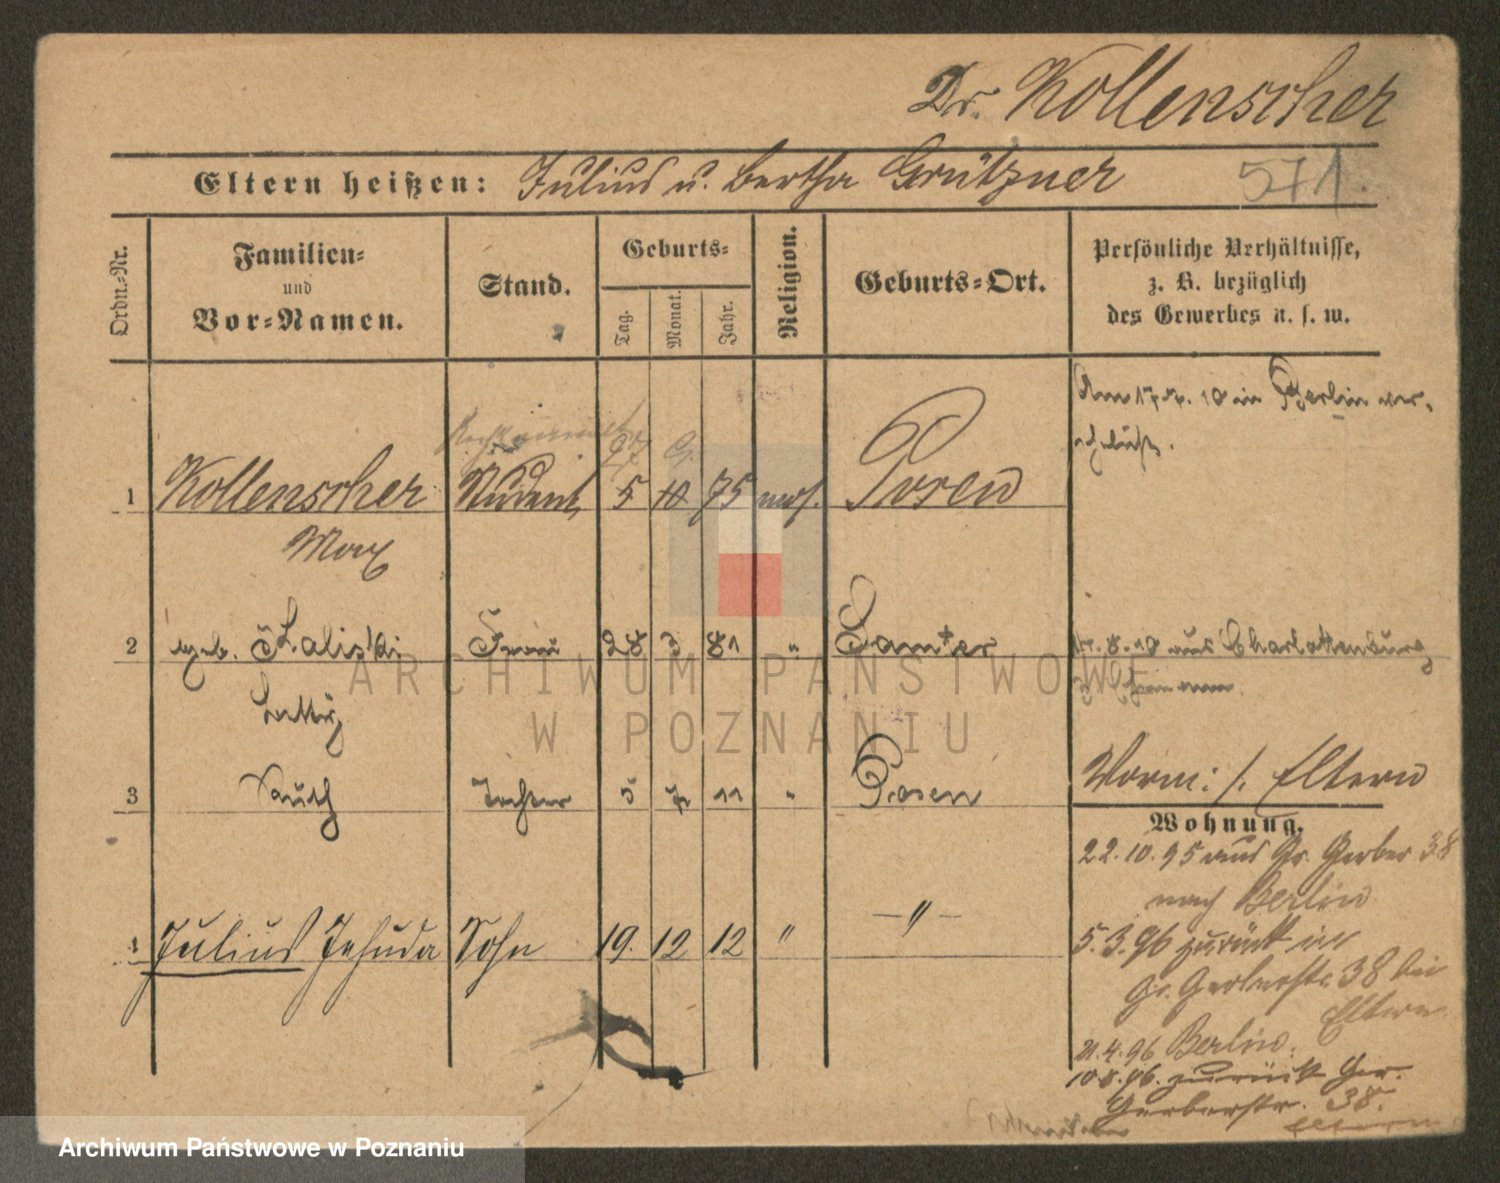 Dr. Kollenscher
Eltern heißen: Julius u. Bertha Grützner 571.
Ordn.-Nr.
Familien-
und
Vor-Namen.
Stand.
Geburts-
Tag. Monat. Jahr.
Religion.
Geburts-Ort.
Persönliche Verhältnisse,
z. B. bezüglich
des Gewerbes u. s. w.
Am 17. 7. 10 in Berlin ver-
27 9.
1 Kollenscher Student 5 10 75 mos. Posen
Max
2 geb. Zaliski Frau 28 3 81 " Samter 8. 10 aus Charlottenburg
3 Ruth Tochter 5 7 11 " Posen
Vorm: /. Eltern
Wohnung.
22. 10. 95 aus Gr. Gerber 38
nach Berlin
4 Julius Jehuda Sohn 19. 12 12 " — " —
5. 3. 96 zurück
Gr. Gerberstr. 38 bei
Eltern
21. 4. 96 Berlin.
10 8. 96. zurück Gr.
Gerberstr. 38.
Eltern
ARCHIWUM PAŃSTWOWE
W POZNANIU
Archiwum Państwowe w Poznaniu